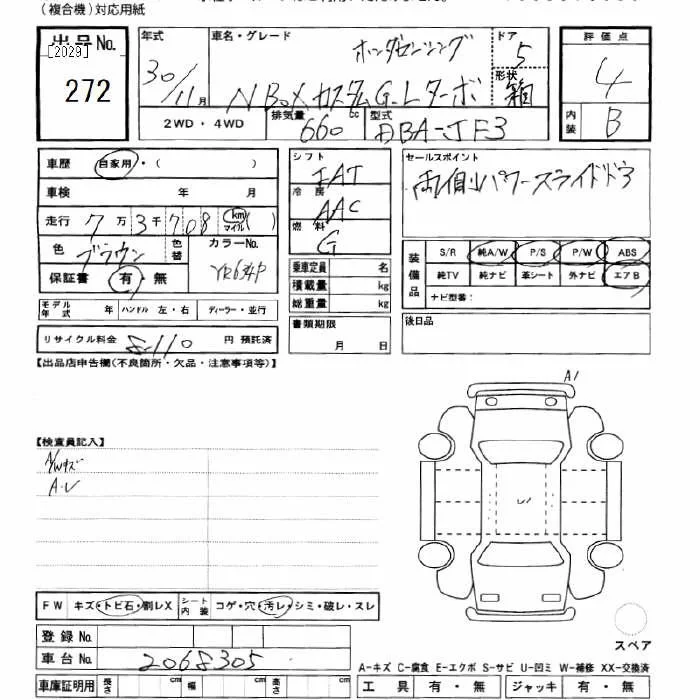 (複合機)対応用紙
出品No.
[2029]
272
年式
30/11月
車名・グレード
ホンダセンシング
N BOXカスタム G.Lターボ
ドア
5
形状
箱
評価点
4
内装
B
2WD・4WD
排気量
660 cc
型式
DBA-JF3
車歴 自家用・( )
車検 年 月
走行 7万3千708 km マイル ( )
色 ブラウン 色替
カラーNo.
YR634P
保証書 有・無
モデル年式 年 ハンドル 左・右 ディーラー・並行
リサイクル料金 8110 円 預託済
シフト
IAT
冷房
AAC
燃料
G
乗車定員 名
積載量 kg
総重量 kg
書類期限
月 日
セールスポイント
両側パワースライドドア
装備品
S/R 純A/W P/S P/W ABS
純TV 純ナビ 革シート 外ナビ エアB
ナビ型番:
後日品
【出品店申告欄(不良箇所・欠品・注意事項等)】
【検査員記入】
A/Wキズ
A.U
A1
FW キズ・トビ石・割レX
シート内装 コゲ・穴・汚レ・シミ・破レ・スレ
登録No.
車台No. 2068305
車庫証明用 長さ cm 幅 cm 高さ cm
スペア
A-キズ C-腐食 E-エクボ S-サビ U-凹ミ W-補修 XX-交換済
工具 有・無 ジャッキ 有・無